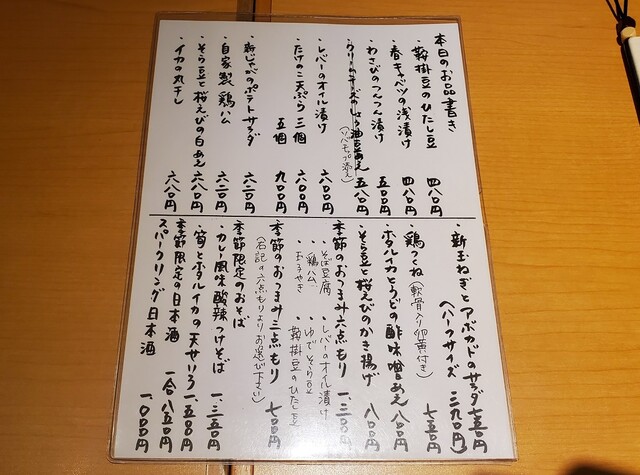 本日のお品書き
・鞍掛豆のひたし豆 四八〇円
・春キャベツの浅漬け 四八〇円
・わさびのつんつん漬け 五〇〇円
・クリームチーズのしょう油豆あえ 五八〇円
(リバモップ添え)
・レバーのオイル漬け 六〇〇円
・たけのこ天ぷら 三個 六〇〇円
五個 九〇〇円
・新じゃがのポテトサラダ 六二〇円
・自家製 鶏ハム 六二〇円
・そら豆と桜えびの白あえ 六八〇円
・イカの丸干し 六八〇円
・新玉ねぎとアボカドのサラダ 七五〇円
(ハーフサイズ 三九〇円)
・鶏つくね(軟骨入り卵黄付き) 七五〇円
・ホタルイカとうどの酢味噌あえ 八〇〇円
・そら豆と桜えびのかき揚げ 八〇〇円
季節のおつまみ六点もり 一、三〇〇円
・そば豆腐 ・レバーのオイル漬け
・鶏ハム ・ゆでそら豆
・玉子やき ・鞍掛豆のひたし豆
季節のおつまみ三点もり 七〇〇円
(右記の六点もりよりお選び下さい)
季節限定のおそば
・カレー風味酸辣つけそば 一、三五〇円
・筍とホタルイカの天せいろ 一、五〇〇円
季節限定の日本酒 一合 八五〇円
スパークリング日本酒 一、〇〇〇円